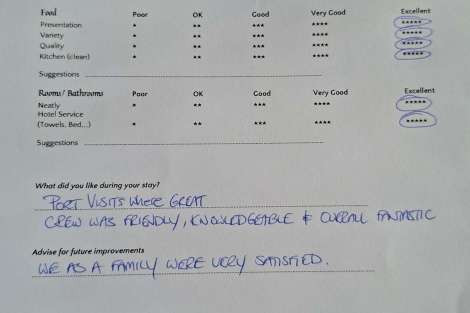 Food Poor OK Good Very Good Excellent
Presentation * ** *** **** *****
Variety * ** *** **** *****
Quality * ** *** **** *****
Kitchen (clean) * ** *** **** *****
Suggestions
Rooms/ Bathrooms Poor OK Good Very Good Excellent
Neatly * ** *** **** *****
Hotel Service
(Towels, Bed...) * ** *** **** *****
Suggestions
What did you like during your stay?
PORT VISITS WHERE GREAT
CREW WAS FRIENDLY, KNOWLEDGEABLE & OVERALL FANTASTIC
Advise for future improvements
WE AS A FAMILY WERE VERY SATISFIED.